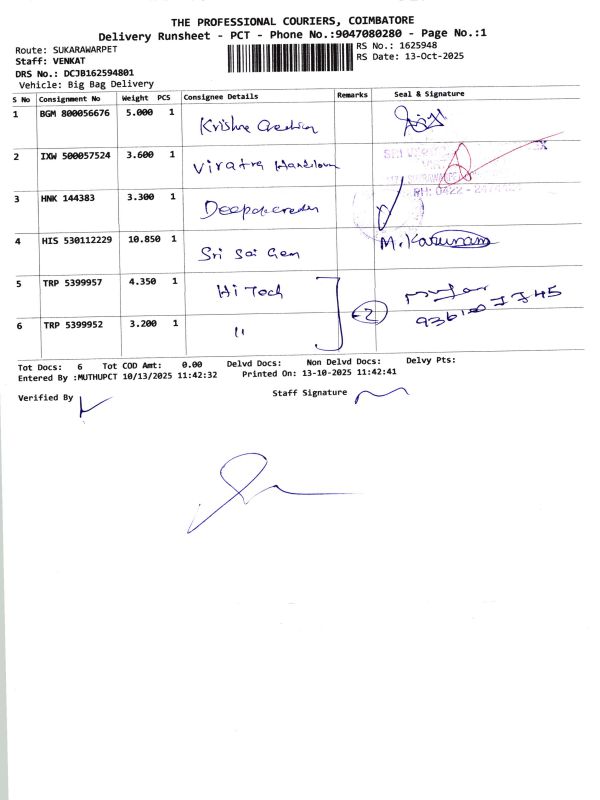 THE PROFESSIONAL COURIERS, COIMBATORE
Delivery Runsheet - PCT - Phone No.:9047080280 - Page No.:1
Route: SUKARAWARPET
RS No.: 1625948
Staff: VENKAT
RS Date: 13-Oct-2025
DRS No.: DCJB162594801
Vehicle: Big Bag Delivery
S No Consignment No Weight PCS Consignee Details Remarks Seal & Signature
1 BGM 800056676 5.000 1 Krishna Creation
2 IXW 500057524 3.600 1 Viratra Handloom
3 HNK 144383 3.300 1
PH: 0422 -
4 HIS 530112229 10.850 1 Sri Sai Gem M. Karunam
5 TRP 5399957 4.350 1 Hi Tech
6 TRP 5399952 3.200 1 " -2
Tot Docs: 6 Tot COD Amt: 0.00 Delvd Docs: Non Delvd Docs: Delvy Pts:
Entered By :MUTHUPCT 10/13/2025 11:42:32 Printed On: 13-10-2025 11:42:41
Verified By
Staff Signature